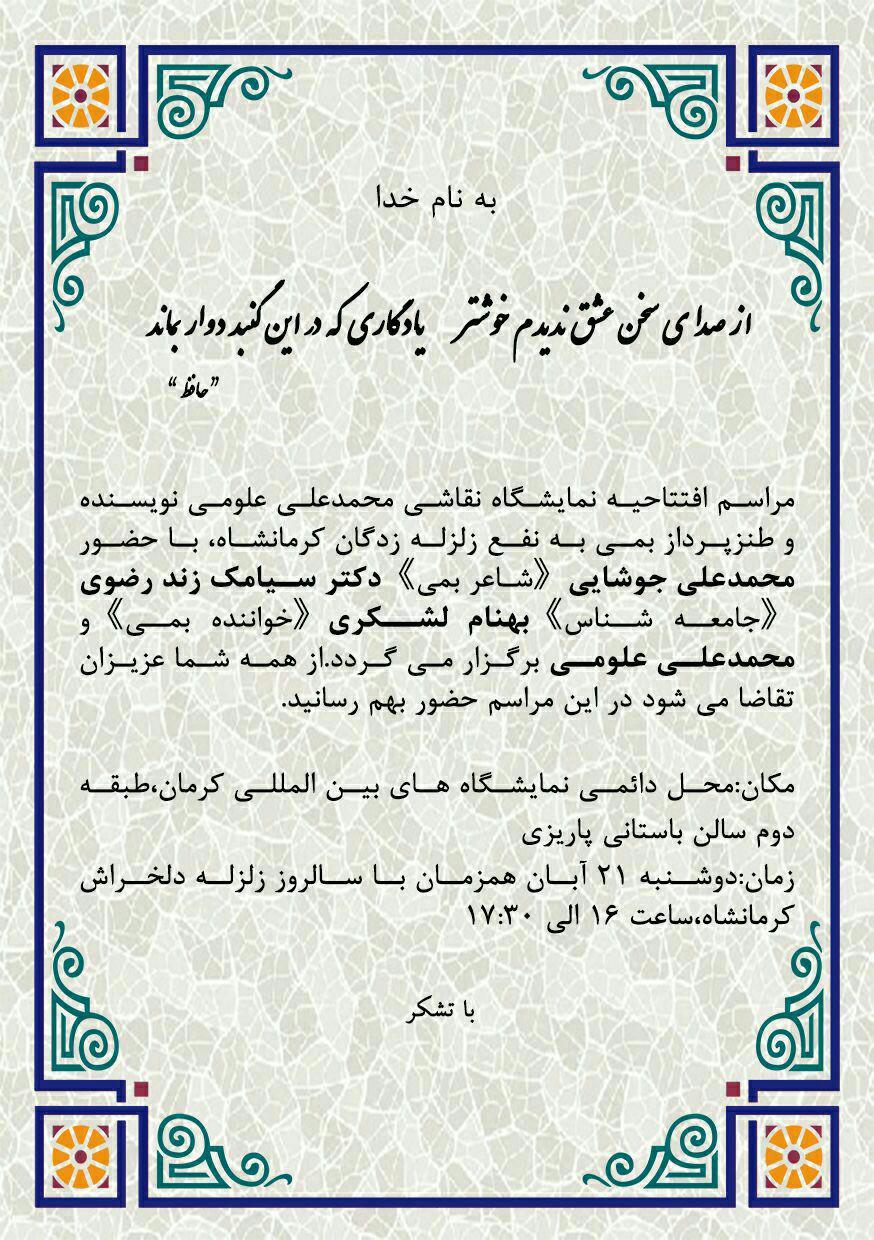 به نام خدا
از صدای سخن عشق ندیدم خوشتر یادگاری که در این گنبد دوار بماند
”حافظ“
مراسم افتتاحیه نمایشگاه نقاشی محمدعلی علومی نویسنده
و طنزپرداز بمی به نفع زلزله زدگان کرمانشاه، با حضور
محمدعلی جوشایی 《شاعر بمی》 دکتر سیامک زند رضوی
《جامعه شناس》 بهنام لشکری 《خواننده بمی》 و
محمدعلی علومی برگزار می گردد.از همه شما عزیزان
تقاضا می شود در این مراسم حضور بهم رسانید.
مکان:محل دائمی نمایشگاه های بین المللی کرمان،طبقه
دوم سالن باستانی پاریزی
زمان:دوشنبه ۲۱ آبان همزمان با سالروز زلزله دلخراش
کرمانشاه،ساعت ۱۶ الی ۱۷:۳۰
با تشکر